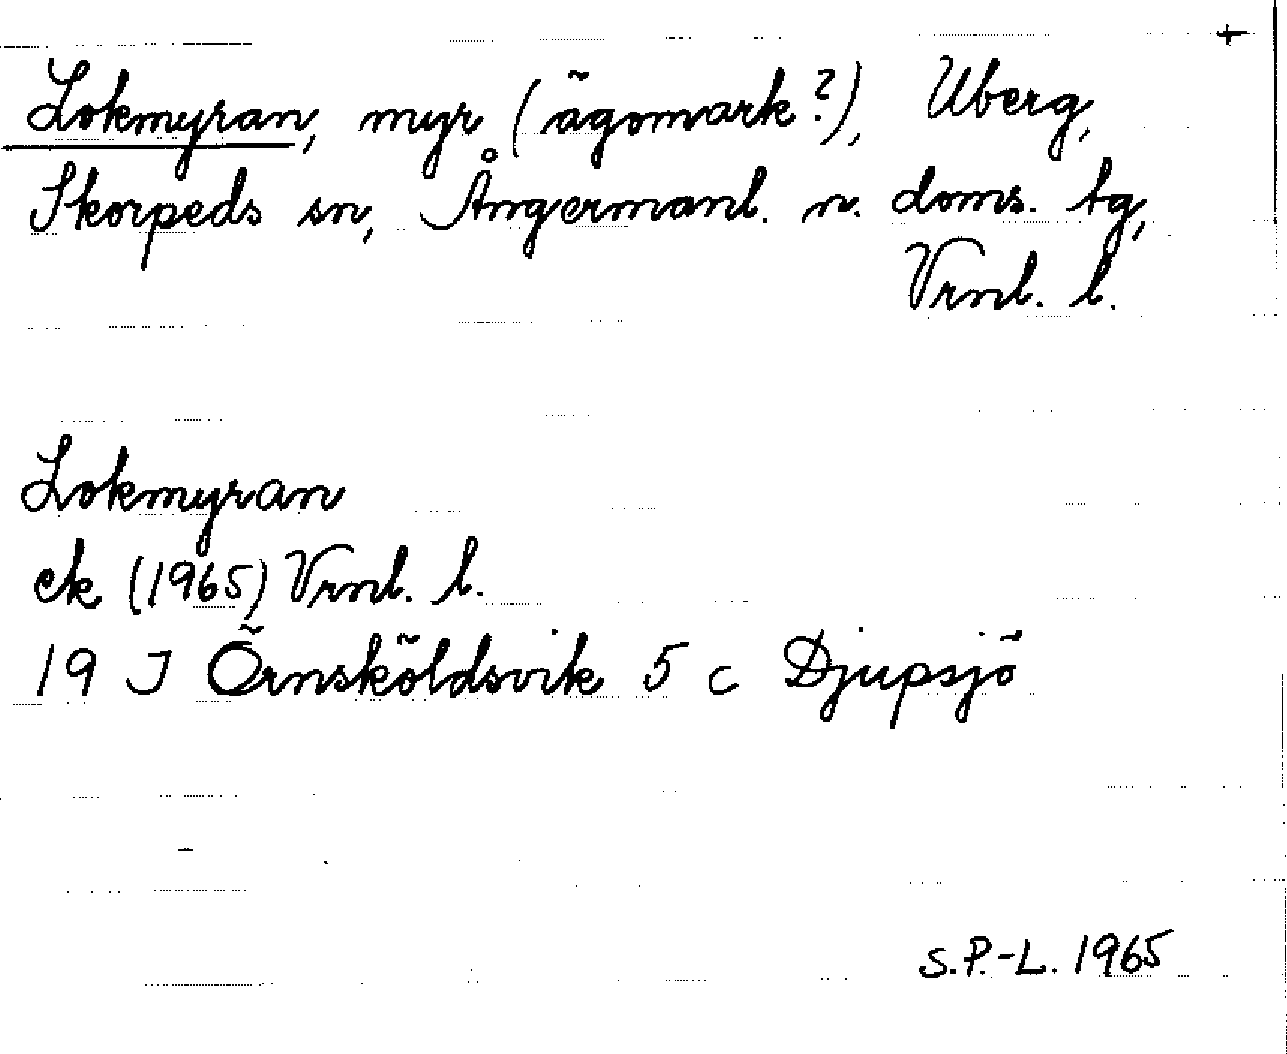 +
Lokmyran, myr (ägomark?), Uberg,
Skorpeds sn, Ångermanl. n. doms. tg,
Vrnl. l.
Lokmyran
ek (1965) Vrnl. l.
19 J Örnsköldsvik 5 c Djupsjö
S.P.-L. 1965